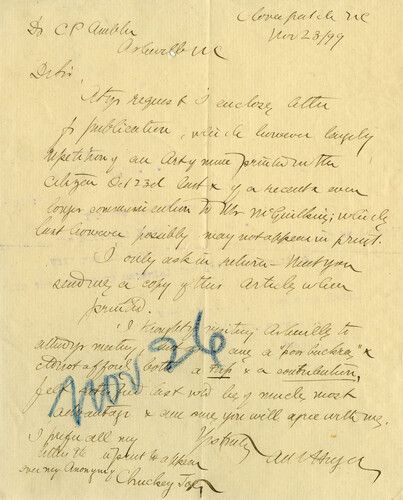 NC
Nov 23/99
Dr C P Ambler
Asheville NC
Dr Sir.
At yr request I enclose letter
for publication, which however largely
repetition of an Art of mine printed in the
Citizen Oct 23d last & of a recent & even
longer communication to Mr McGuilkin; which
last however possibly may not appear in print.
I only ask in return - that you
send me a copy of this Article when
printed.
I thought of visiting Asheville to
attend yr meeting but am a "poor buckra" &
could not afford both a trip & a contribution,
last will be of much most
advantage & am sure you will agree with me.
Yrs truly
I prefer all my
to appear
over my Anonym
Chuckey Joe
Nov 26